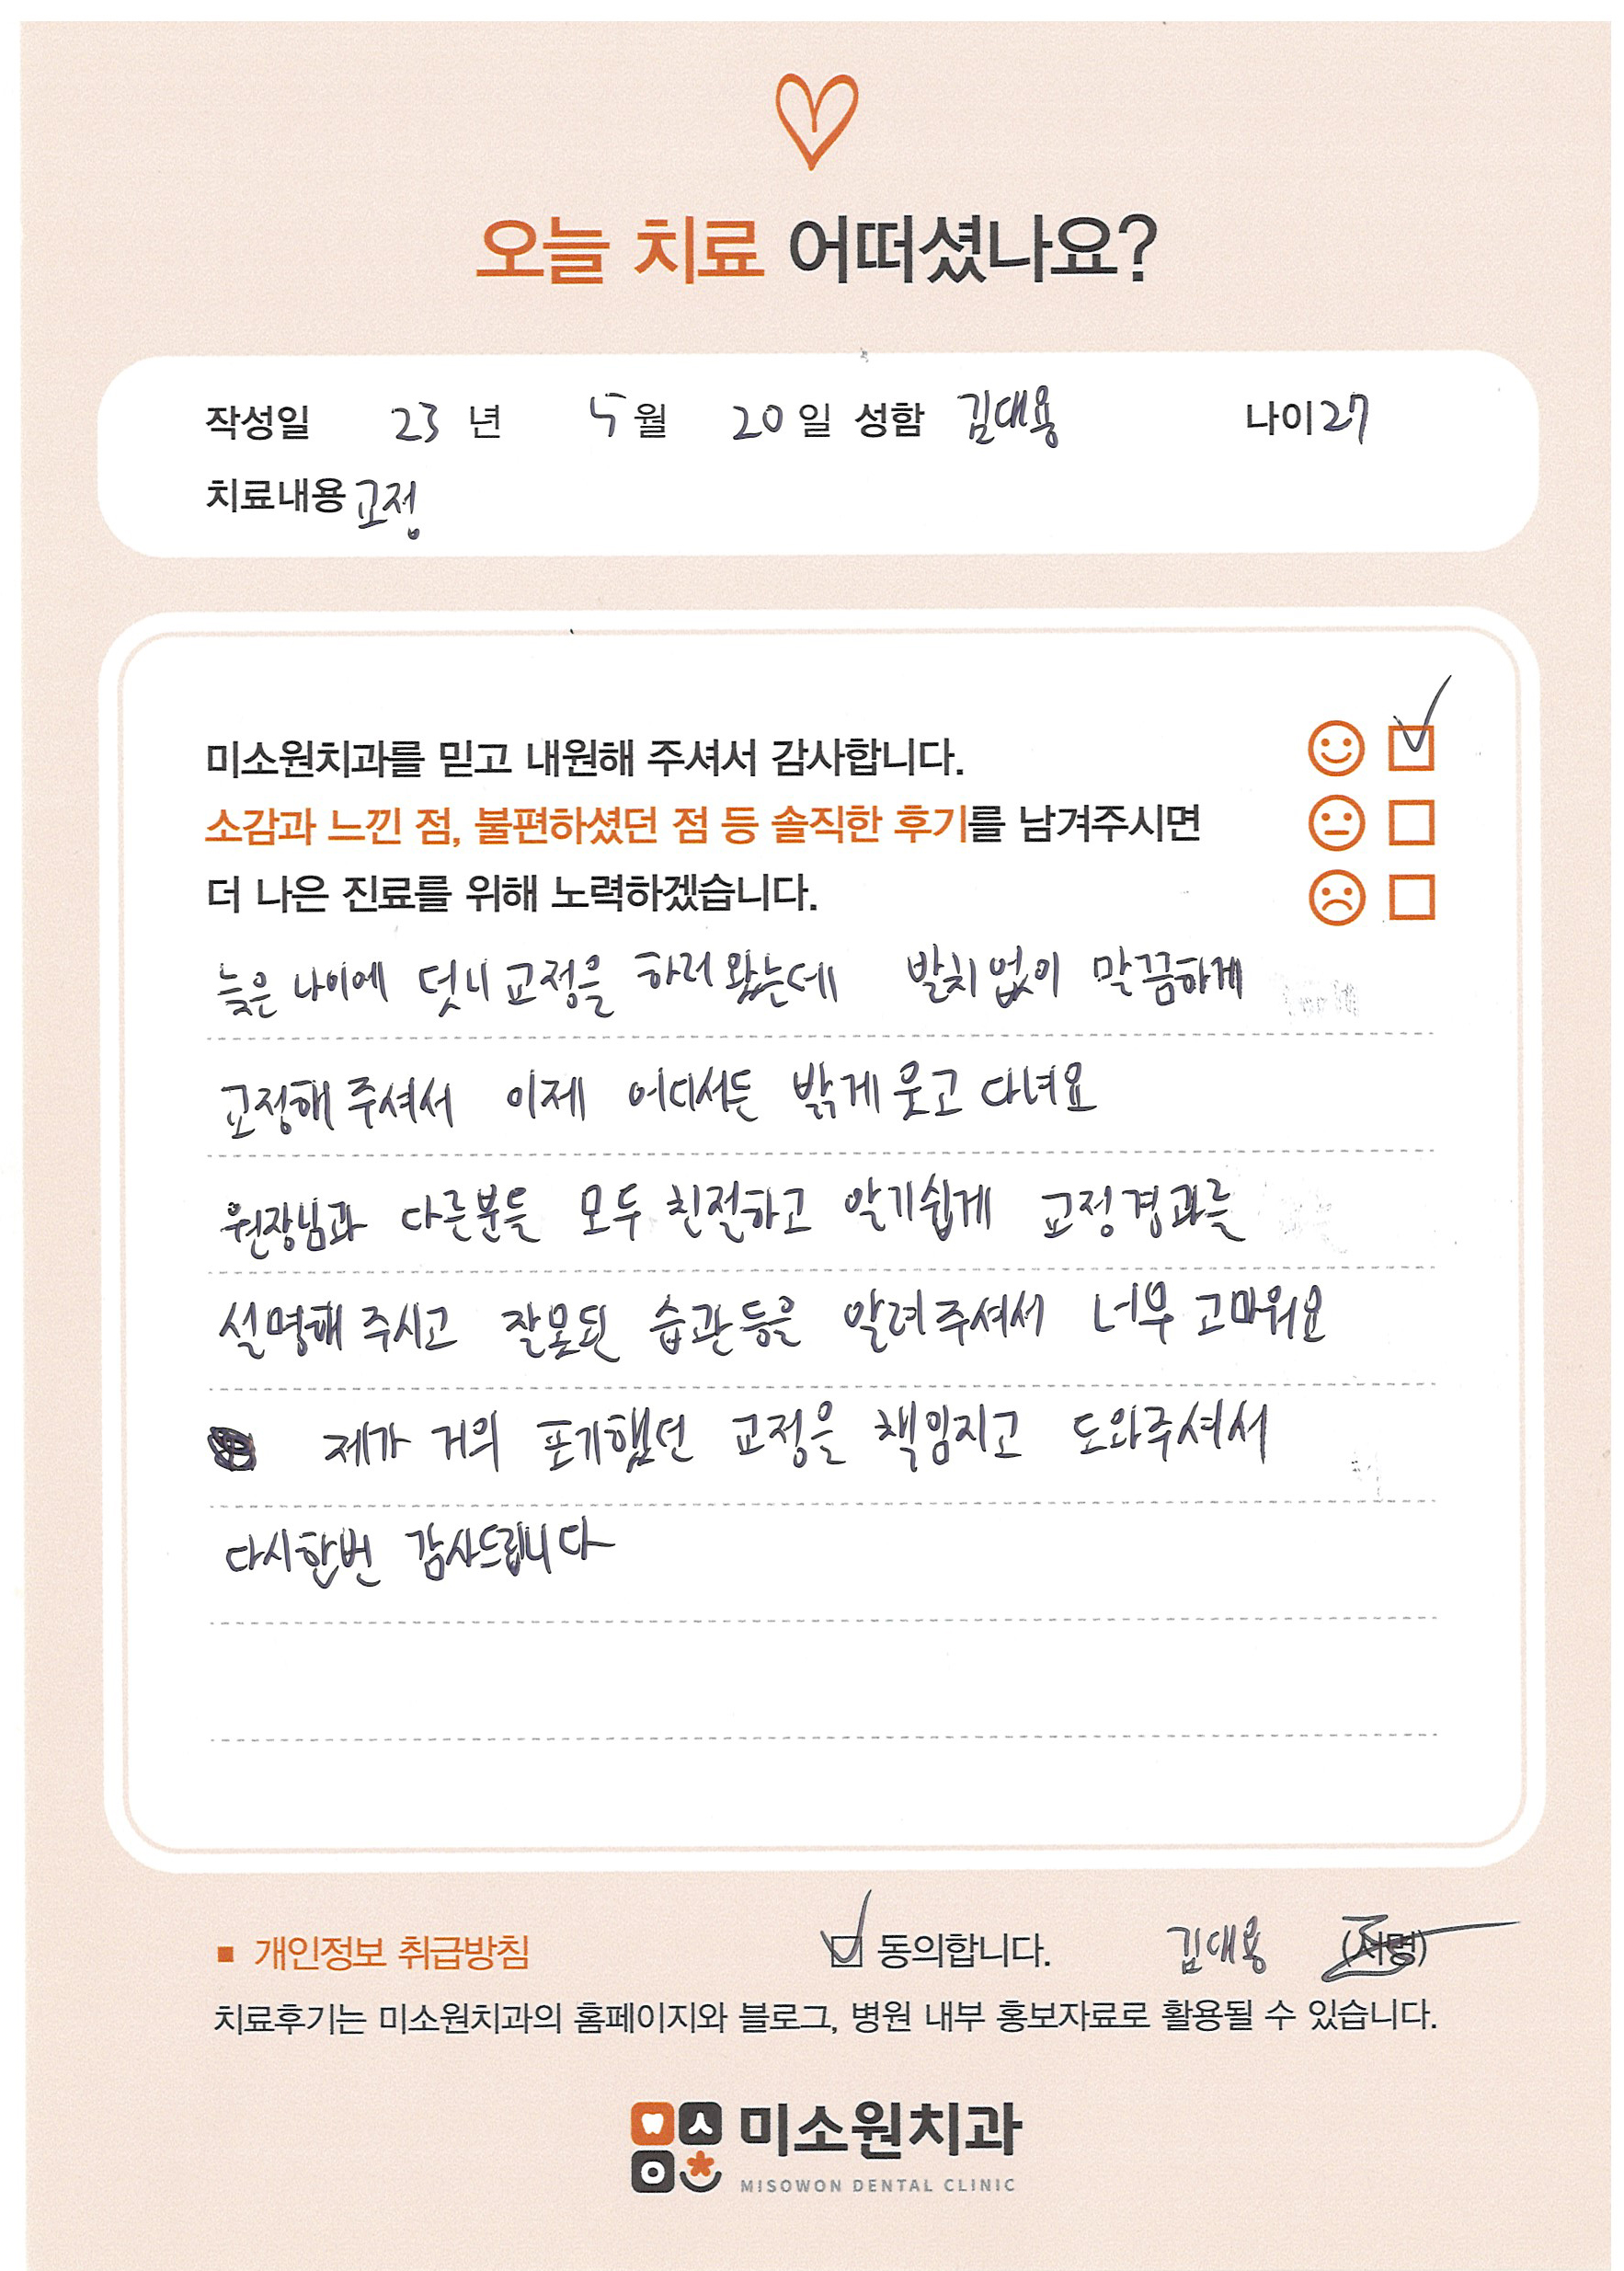 오늘 치료 어떠셨나요?
작성일 23 년 5 월 20 일 성함 김대용 나이 27
치료내용 교정
미소원치과를 믿고 내원해 주셔서 감사합니다.
소감과 느낀 점, 불편하셨던 점 등 솔직한 후기를 남겨주시면
더 나은 진료를 위해 노력하겠습니다.
늦은 나이에 덧니 교정을 하러 왔는데 발치없이 말끔하게
교정해 주셔서 이제 어디서든 밝게 웃고 다녀요
원장님과 다른분들 모두 친절하고 알기쉽게 교정경과를
설명해 주시고 잘못된 습관등을 알려주셔서 너무 고마워요
제가 거의 포기했던 교정을 책임지고 도와주셔서
다시한번 감사드립니다
■ 개인정보 취급방침 동의합니다. 김대용 (서명)
치료후기는 미소원치과의 홈페이지와 블로그, 병원 내부 홍보자료로 활용될 수 있습니다.
미소원치과
MISOWON DENTAL CLINIC